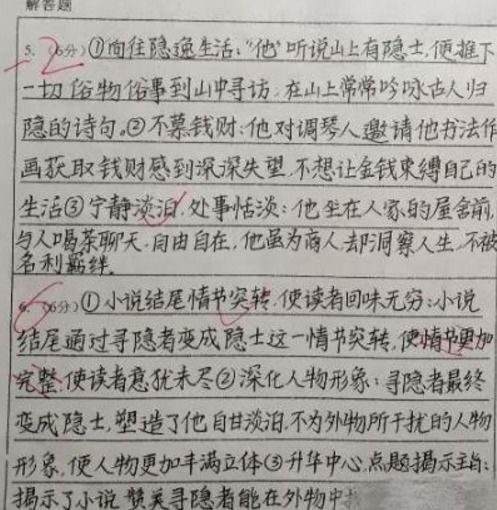 解答题
5. (6分)①向往隐逸生活:"他"听说山上有隐士,便推下
-2
一切俗物俗事到山中寻访,在山上常常吟咏古人归
隐的诗句。②不慕钱财:他对调琴人邀请他书法作
画获取钱财感到深深失望,不想让金钱束缚自己的
生活③宁静淡泊,处事恬淡:他坐在人家的屋舍前,
与人喝茶聊天,自由自在,他虽为商人,却洞察人生,不被
名利羁绊。
6. (6分)①小说结尾情节突转,使读者回味无穷:小说
结尾通过寻隐者变成隐士这一情节突转,使情节更加
完整,使读者意犹未尽②深化人物形象:寻隐者最终
变成隐士,塑造了他自甘淡泊,不为外物所干扰的人物
形象,使人物更加丰满立体③升华中心,点题揭示主旨:
揭示了小说赞美寻隐者能在外物中